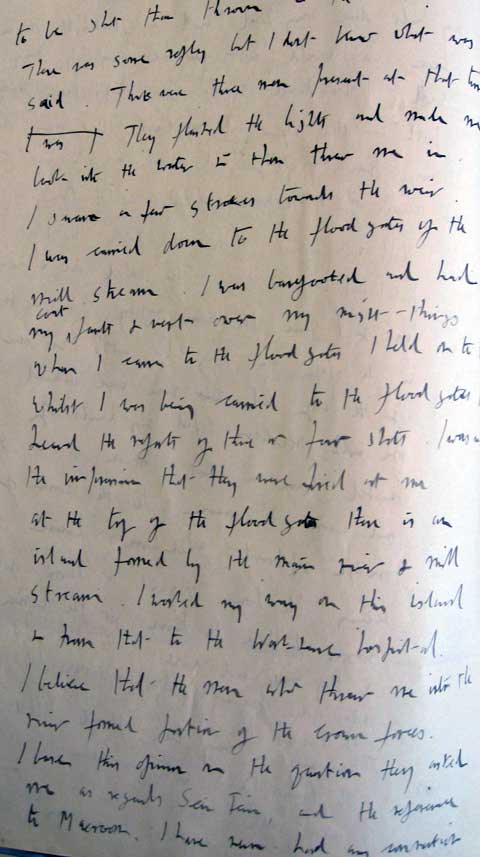 to be shot then thrown in the
There was some reply but I don't know what was
said. There were three men present at that time
They flashed the lights and made me
look into the water & then threw me in.
I swam a few strokes towards the weir.
I was carried down to the flood gates of the
mill stream. I was barefooted and had
my coat pants & vest over my night-things
when I came to the flood gates I held on to
Whilst I was being carried to the flood gates I
heard the reports of three or four shots. I was
the impression that they were fired at me
at the top of the flood gate there is an
island formed by the main river & mill
stream. I worked my way on this island
& from that to the Work-house hospital.
I believe that the men who threw me into the
river formed portion of the crown forces.
I base this opinion on the question they asked
me as regards Sein Fein, and the reference
to Macroom. I have never had any connection